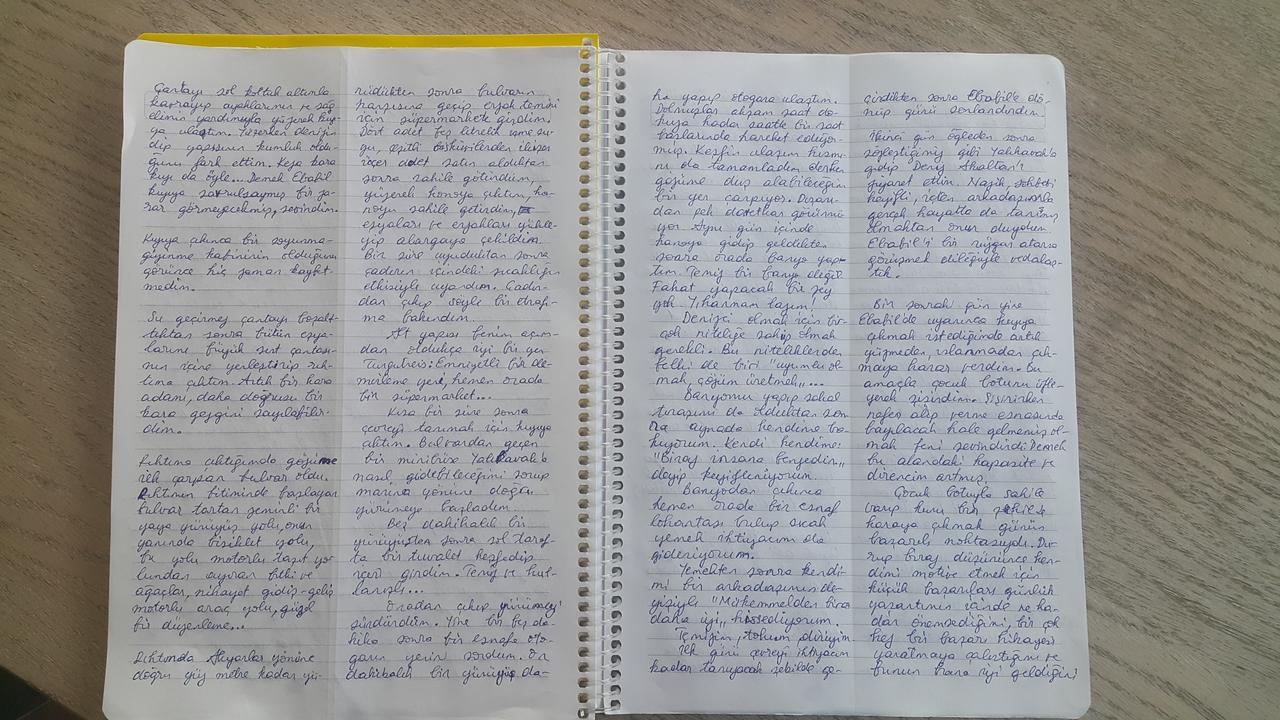 Çantayı sol koltuk altımla
kavrayıp ayaklarımın ve sağ
elimin yardımıyla kıyı
ya ulaştım. Yüzerken denizin
dip yapısının kumluk oldu-
ğunu fark ettim. Keza kara
kıyı da öyle... Demek Ebabil
kıyıya savrulsaymış bir za-
rar görmeyecekmiş, sevindim.
Kıyıya çıkınca bir soyunma-
giyinme kabininin olduğunu
görünce hiç zaman kaybet
medim.
Su geçirmez çantayı boşalt-
tıktan sonra bütün eşya-
larımı büyük sırt çanta-
nın içine yerleştirip rıh-
tıma çıktım. Artık bir kara
adamı, daha doğrusu bir
kara gezgini sayılabilir-
dim.
Rıhtıma çıktığımda gözüme
ilk çarpan bulvar oldu.
Rıhtımın bitiminde başlayan
bulvar tartan zeminli bir
yaya yürüyüş yolu, onun
yanında bisiklet yolu,
bu yolu motorlu taşıt yo-
lundan ayıran bitki ve
ağaçlar, nihayet gidiş-geliş
motorlu araç yolu, güzel
bir düzenleme...
Rıhtımda Akyarlar yönüne
doğru yüz metre kadar yü-
rüdükten sonra bulvarın
karşısına geçip erzak temini
için süpermarkete girdim.
Dört adet beş litrelik içme su-
yu, çeşitli bisküvilerden ikişer
üçer adet satın aldıktan
sonra sahile götürdüm,
yüzerek kanoya çıktım, ka-
noyu sahile getirdim,
eşyaları ve erzakları yükle-
yip alargaya çekildim.
Bir süre uyuduktan sonra
çadırın içindeki sıcaklığın
etkisiyle uyandım. Çadır-
dan çıkıp şöyle bir etrafı-
ma bakındım.
Alt yapısı benim açım-
dan oldukça iyi bir yer
Turgutreis: Emniyetli bir de-
mirleme yeri, hemen orada
bir süpermarket...
Kısa bir süre sonra
çevreyi tanımak için kıyıya
çıktım. Bulvardan geçen
bir minibüse Yalıkavak'a
nasıl gidebileceğimi sorup
marina yönüne doğru
yürümeye başladım.
Beş dakikalık bir
yürüyüşten sonra sol taraf-
ta bir tuvalet keşfedip
içeri girdim. Temiz ve kul-
lanışlı...
Oradan çıkıp yürümeyi
sürdürdüm. Yine bir beş da-
kika sonra bir esnafa oto-
garın yerini sordum. On
dakikalık bir yürüyüş da-
ha yapıp otogara ulaştım.
Dolmuşlar akşam saat do-
kuza kadar saatte bir saat
başlarında hareket ediyor-
muş. Keşfin ulaşım kısmı-
nı da tamamladım derken
gözüme duş alabileceğim
bir yer çarpıyor. Dışarı-
dan pek davetkar görünmü
yor. Aynı gün içinde
kanoya gidip geldikten
sonra orada banyo yap-
tım. Temiz bir banyo değil.
Fakat yapacak bir şey
yok. Yıkanmam lazım!
Denizci olmak için bir-
çok niteliğe sahip olmak
gerekli. Bu niteliklerden
belki de biri "uyumlu ol-
mak, çözüm üretmek"...
Banyomu yapıp sakal
tıraşımı da olduktan son
ra aynada kendime ba-
kıyorum. Kendi kendime:
"Biraz insana benzedin"
deyip keyifleniyorum.
Banyodan çıkınca
hemen orada bir esnaf
lokantası bulup sıcak
yemek ihtiyacımı da
gideriyorum.
Yemekten sonra kendi-
mi bir arkadaşımın de-
yişiyle "Mükemmelden biraz
daha iyi" hissediyorum.
Temizim, tokum, diriyim
İlk günü çevreyi ihtiyacım
kadar tanıyacak şekilde ge-
çirdikten sonra Ebabil'e dö-
nüp günü sonlandırdım.
İkinci gün öğleden sonra
sözleştiğimiz gibi Yalıkavak'a
gidip Deniz
ziyaret ettim. Nazik, sohbeti
keyifli, içten arkadaşımla
gerçek hayatta da tanışmış
olmaktan onur duydum
Ebabil'i bir rüzgar atarsa
görüşmek dileğiyle vedalaş-
tık.
Bir sonraki gün yine
Ebabil'de uyanınca kıyıya
çıkmak istediğimde artık
yüzmeden, ıslanmadan çık-
maya karar verdim. Bu
amaçla çocuk botunu üfle-
yerek şişirdim. Şişirirken
nefes alıp verme esnasında
bayılacak hale gelmemiş ol-
mak beni sevindirdi. Demek
bu alandaki kapasite ve
direncim artmış.
Çocuk botuyla sahile
varıp kuru bir şekilde
karaya çıkmak günün
başarılı noktasıydı. Du-
rup biraz düşününce ken-
dimi motive etmek için
küçük başarıları günlük
yazarımın içinde ne ka-
dar önemsediğimi, bir çok
kez bir başarı hikayesi
yaratmaya çalıştığımı ve
bunun bana iyi geldiğini